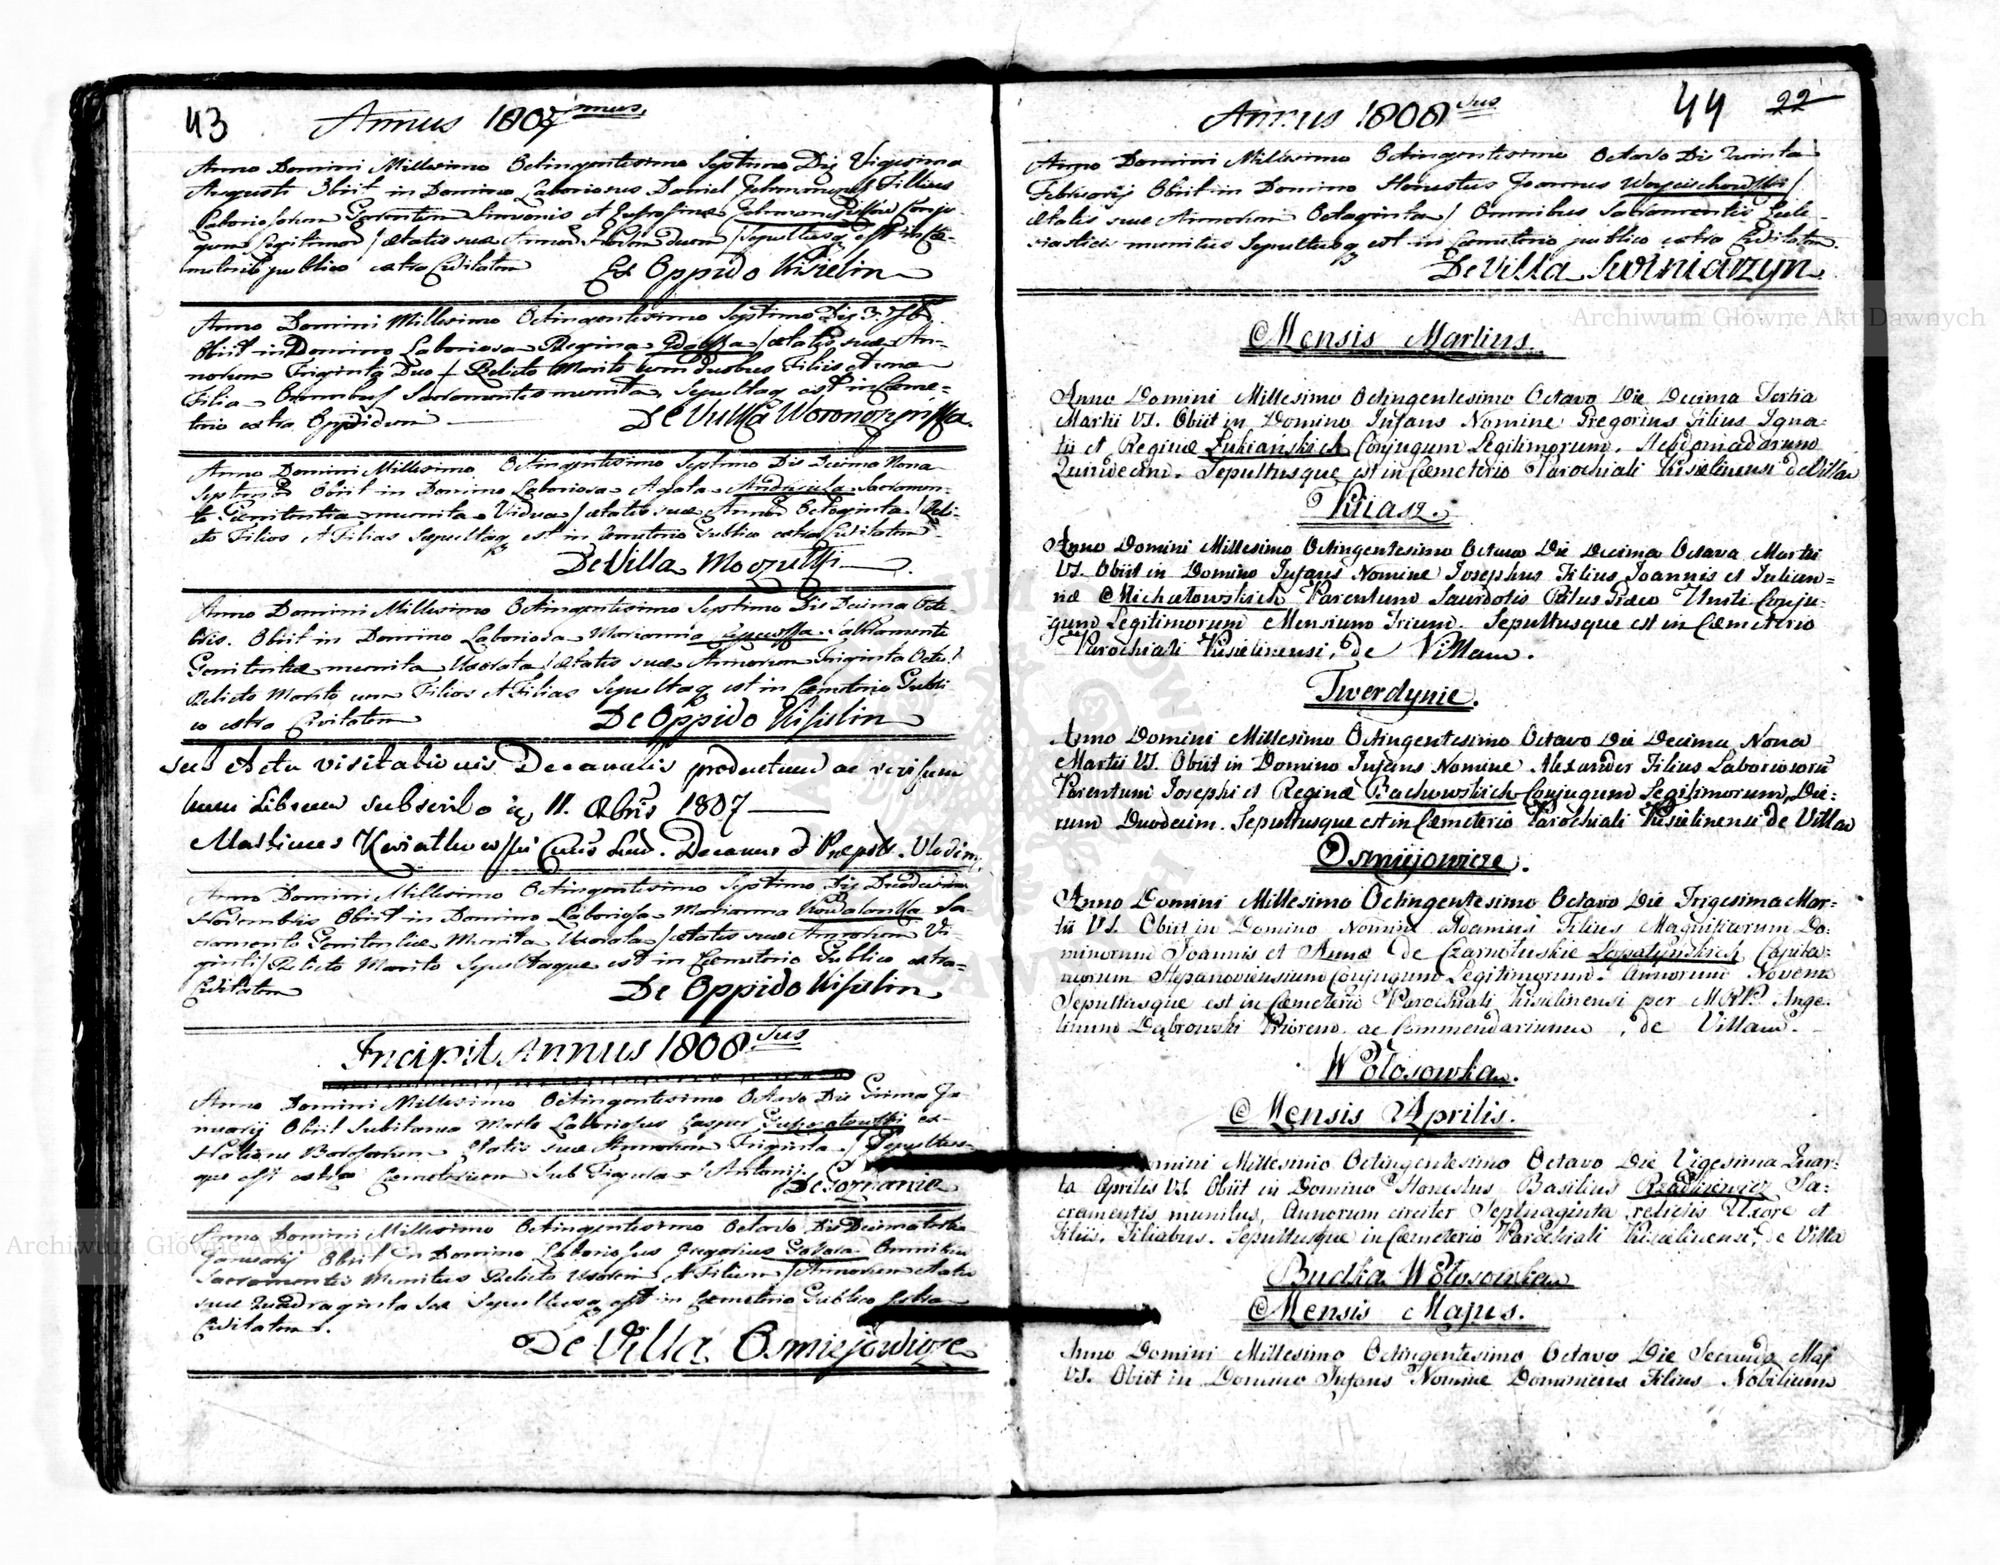 43
Annus 1807mus
Anno Domini Millesimo Octingentesimo Septimo Die Vigesima
Augusti Obiit in Domino Laboriosus Daniel Filius
Laboriosorum Parentum Simeonis et Eufrosinæ Conju-
gum Legitimor / ætatis suæ Annor / Sepultusq est in Cæ-
meterio publico extra Civitatem
Ex Oppido Kisielin
Anno Domini Millesimo Octingentesimo Septimo Die 3. 7br
Obiit in Domino Laboriosa Regina / ætatis suæ An-
norum Triginta Duo / Relicto Marito cum duobus Filiis et una
Filia Omnibus Sacramentis munita, Sepultaq est in Cæme-
terio extra Oppidum
De Villa Woronczyn
Anno Domini Millesimo Octingentesimo Septimo Die Decima Nona
Septembr Obiit in Domino Laboriosa Agata Andrsula Sacramen-
to Penitentiæ munita Vidua / ætatis suæ Annor Octoginta / Reli-
cto Filios et Filias Sepultaq est in Cemeterio Publico extra Civitatem
De Villa
Anno Domini Millesimo Octingentesimo Septimo Die Decima Octo-
bris. Obiit in Domino Laboriosa Marianna Sacramento
Penitentiæ munita Uxorata / ætatis suæ Annorum Triginta Octo /
Relicto Marito cum Filios et Filias Sepultaq est in Cæmeterio Publi
co extra Civitatem
De Oppido Kisielin
sub Actu visitationis Decanalis productum ac revisum
hunc Librum subscribo 11. Obris 1807
Decanus Præpots. Vlodim
Anno Domini Millesimo Octingentesimo Septimo Die Duodecima
Novembris Obiit in Domino Laboriosa Marianna Kowalonka Sa-
cramento Penitentiæ Munita Uxorata / ætatis suæ Annorum Vi-
ginti / Relicto Marito Sepultaque est in Cæmeterio Publico extra
Civitatem
De Oppido Kisielin
Incipit Annus 1808vus
Anno Domini Millesimo Octingentesimo Octavo Die Prima Ja-
nuarij Obiit Subitanea Morte Laboriosus Casper ex
Statione Etatis suæ Annorum Triginta / Sepultus-
que est extra Cæmeterium Sub Figura S Antonij.
De
Anno Domini Millesimo Octingentesimo Octavo Die Decima
Januarij Obiit in Domino Laboriosus Gregorius Omnibus
Sacramentis Munitus Relicto Uxorem et Filium / Annorum ætatis
suæ Quadraginta Sex Sepultusq est in Cæmeterio Publico Extra
Civitatem.
De Villa Osmiejowicze
Annus 1808vus
44 22
Anno Domini Millesimo Octingentesimo Octavo Die Quinta
Februarij Obiit in Domino Honestus Joannes Woyciechowski /
ætatis suæ Annorum Octoginta / Omnibus Sacramentis Eccle-
siasticis munitus Sepultusq est in Cæmeterio publico extra Civitatem.
De Villa Swiniarzyn
Mensis Martius.
Anno Domini Millesimo Octingentesimo Octavo Die Decima Tertia
Martii VS. Obiit in Domino Infans Nomine Gregorius Filius Igna-
tii et Reginæ Lukiańskich Conjugum Legitimorum, Hebdomadarum
Quindecim. Sepultusque est in Cæmeterio Parochiali Kisielinensi de Villa
Rtiasz.
Anno Domini Millesimo Octingentesimo Octavo Die Decima Octava Martii
VS. Obiit in Domino Infans Nomine Josephus Filius Joannis et Julian=
næ Michałowskich Parentum Sacerdotis Ritus Græco Uniti Conju-
gum Legitimorum Mensium Trium. Sepultusque est in Cæmeterio
Parochiali Kisielinensi, de Villam.
Twerdynie.
Anno Domini Millesimo Octingentesimo Octavo Die Decima Nona
Martii VS. Obiit in Domino Infans Nomine Alexander Filius Laboriosorū
Parentum Josephi et Reginæ Bachowskich Conjugum Legitimorum, Die-
rum Duodecim. Sepultusque est in Cæmeterio Parochiali Kisielinensi de Villa
Osmiejowicze.
Anno Domini Millesimo Octingentesimo Octavo Die Trigesima Mar-
tii VS. Obiit in Domino Nomine Adamus Filius Magnificorum Do-
minorum Joannis et Annæ de Czarnoluskie Łopatyńskich Capita-
neorum Stepanoviensium Conjugum Legitimorum. Annorum Novem
Sepultusque est in Cæmeterio Parochiali Kisielinensi per MRP. Ange-
linum Dąbrowski Priorem ac Commendarium, de Villam.
Wołosowka.
Mensis Aprilis.
Domini Millesimo Octingentesimo Octavo Die Vigesima Quar-
ta Aprilis VS. Obiit in Domino Honestus Basilius Rzadkiewicz Sa-
cramentis munitus, Annorum circiter Septuaginta relictis Uxore et
Filiis, Filiabus. Sepultusque in Cæmeterio Parochiali Kisielinensi, de Villa
Budka Wołosowka
Mensis Majus.
Anno Domini Millesimo Octingentesimo Octavo Die Secunda Maj
VS. Obiit in Domino Infans Nomine Dominicus Filius Nobilium
Archiwum Główne Akt Dawnych
Archiwum Główne Akt Dawnych